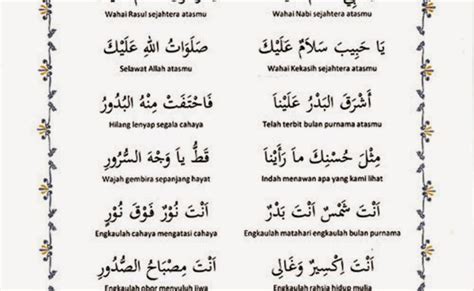 Wahai Nabi sejahtera atasmu
Wahai Rasul sejahtera atasmu
يَا حَبِيبَ سَلاَمٌ عَلَيْكَ
صَلَوَاتُ اللهِ عَلَيْكَ
Wahai Kekasih sejahtera atasmu
Selawat Allah atasmu
أَشْرَقَ الْبَدْرُ عَلَيْنَا
فَاخْتَفَتْ مِنْهُ الْبُدُورُ
Telah terbit bulan purnama atasmu
Hilang lenyap segala cahaya
مِثْلَ حُسْنِكَ مَا رَأَيْنَا
قَطُّ يَا وَجْهَ السُّرُورِ
Indah menawan apa yang kami lihat
Wajah gembira sepanjang hayat
اَنْتَ شَمْسٌ اَنْتَ بَدْرٌ
اَنْتَ نُوْرٌ فَوْقَ نُوْرٍ
Engkaulah matahari engkaulah bulan purnama
Engkaulah cahaya mengatasi cahaya
اَنْتَ اِكْسِيْرٌ وَغَالِي
اَنْتَ مِصْبَاحُ الصُّدُورِ
Engkaulah rahsia hidup mulia
Engkaulah obor menyuluh jiwa